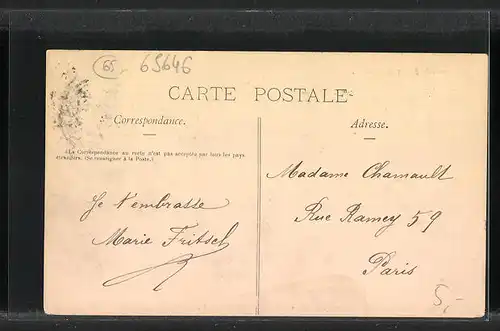 65
65646
CARTE POSTALE
Correspondance.
Adresse.
(La Correspondance au verso n'est pas acceptée par tous les pays
étrangers. (Se renseigner à la Poste.)
Je t'embrasse
Marie Fritsch
Madame Chamault
Rue Ramey 59
Paris
5,-